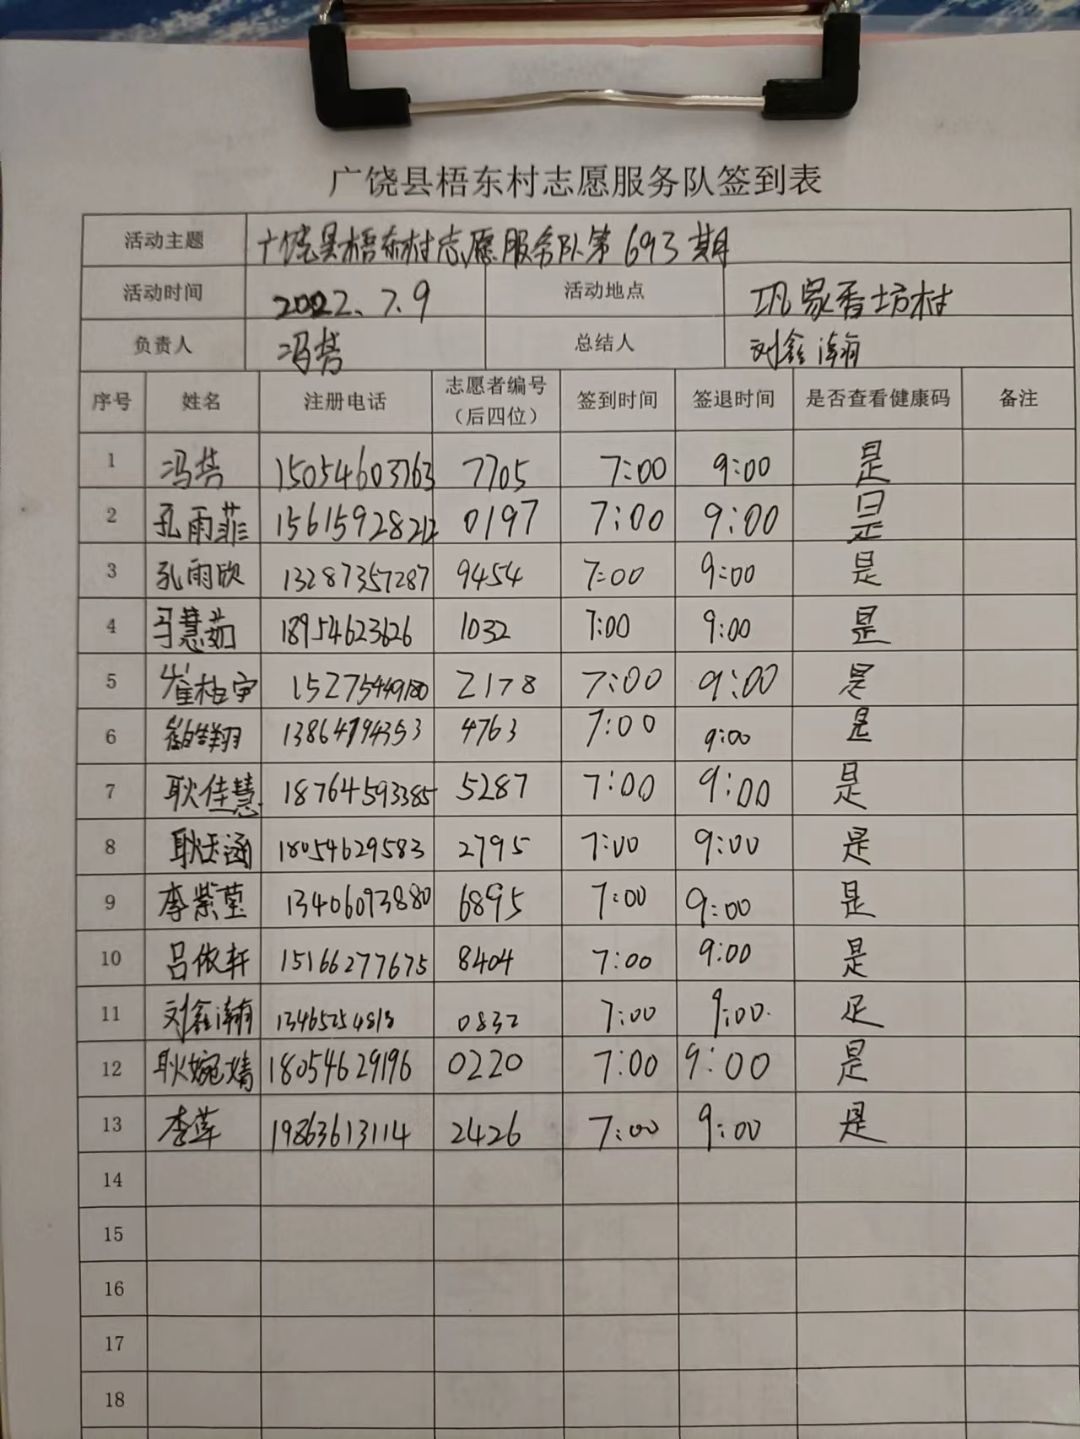 广饶县梧东村志愿服务队签到表
活动主题 广饶县梧东村志愿服务队第693期
活动时间 2022.7.9 活动地点 巩家香坊村
负责人 冯梦 总结人 刘鑫瀚
序号 姓名 注册电话 志愿者编号（后四位） 签到时间 签退时间 是否查看健康码 备注
1 15054603763 7705 7:00 9:00 是
2 孔雨菲 15615928212 0197 7:00 9:00 是
3 孔雨欣 13287357287 9454 7:00 9:00 是
4 马慧茹 18954623626 1032 7:00 9:00 是
5 15275449180 2178 7:00 9:00 是
6 4763 7:00 9:00 是
7 耿佳慧 18764593385 5287 7:00 9:00 是
8 18054629583 2795 7:00 9:00 是
9 李紫莹 13406093880 6895 7:00 9:00 是
10 吕依轩 15166277675 8404 7:00 9:00 是
11 刘鑫瀚 0832 7:00 9:00 是
12 耿婉婧 18054629196 0220 7:00 9:00 是
13 李莲 19863613114 2426 7:00 9:00 是
14
15
16
17
18